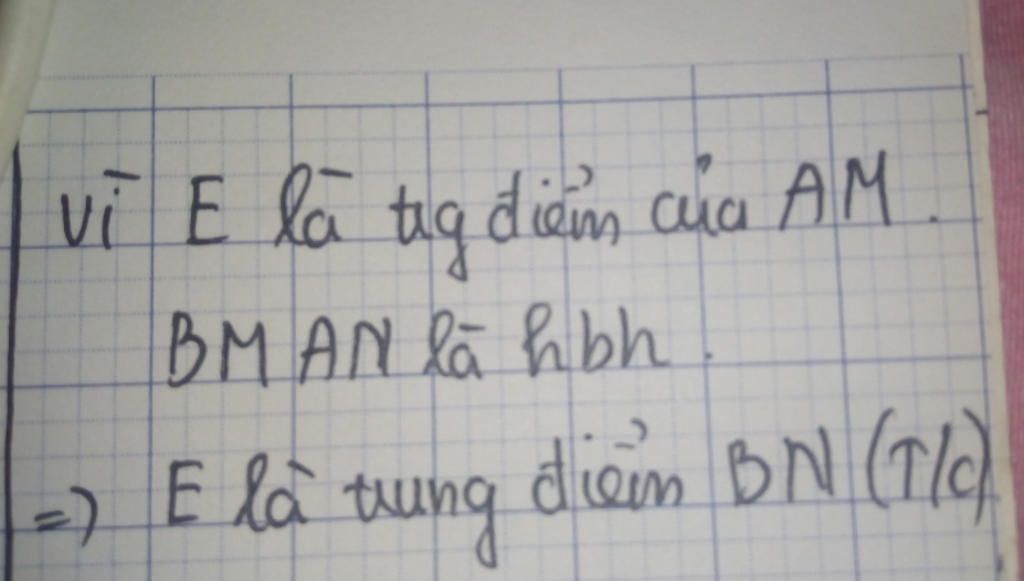 Vì E là tg điểm của AM.
BMAN là hbh.
=) E là trung điểm BN (T/c)